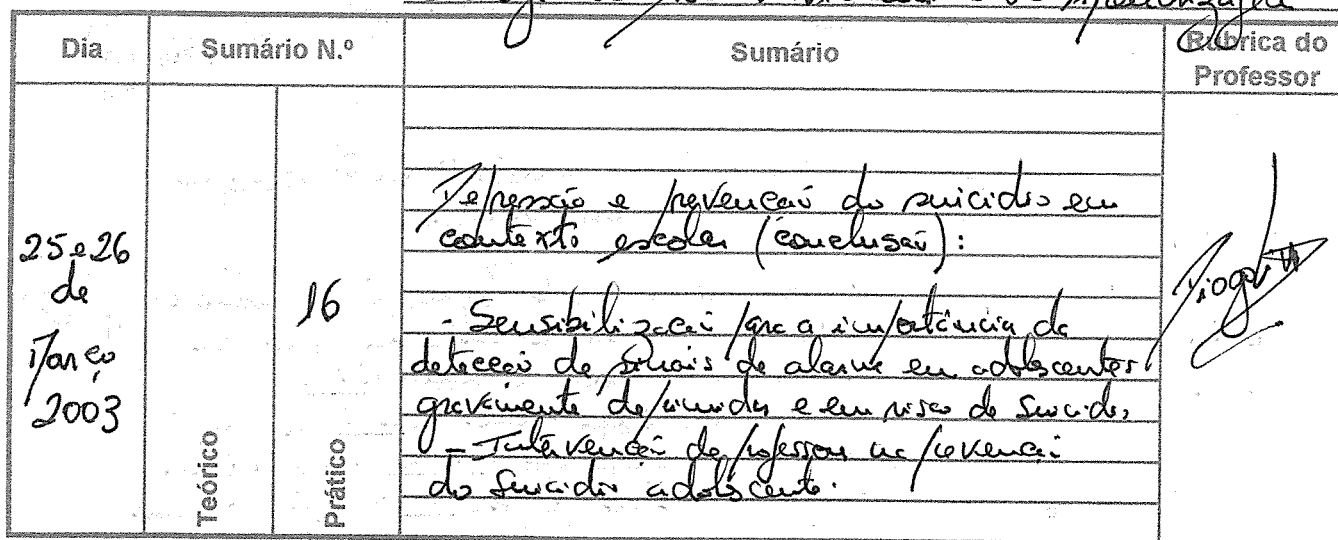 Dia
Sumário N.º
Sumário
Rúbrica do
Professor
25 e 26
de
Março
2003
Teórico
16
Prático
Depressão e prevenção do suicídio em
contexto escolar (conclusão):
- Sensibilização para a importância da
detecção de sinais de alarme em adolescentes
gravemente deprimidos e em risco de suicídio.
- Intervenção do professor na prevenção
do suicídio adolescente.